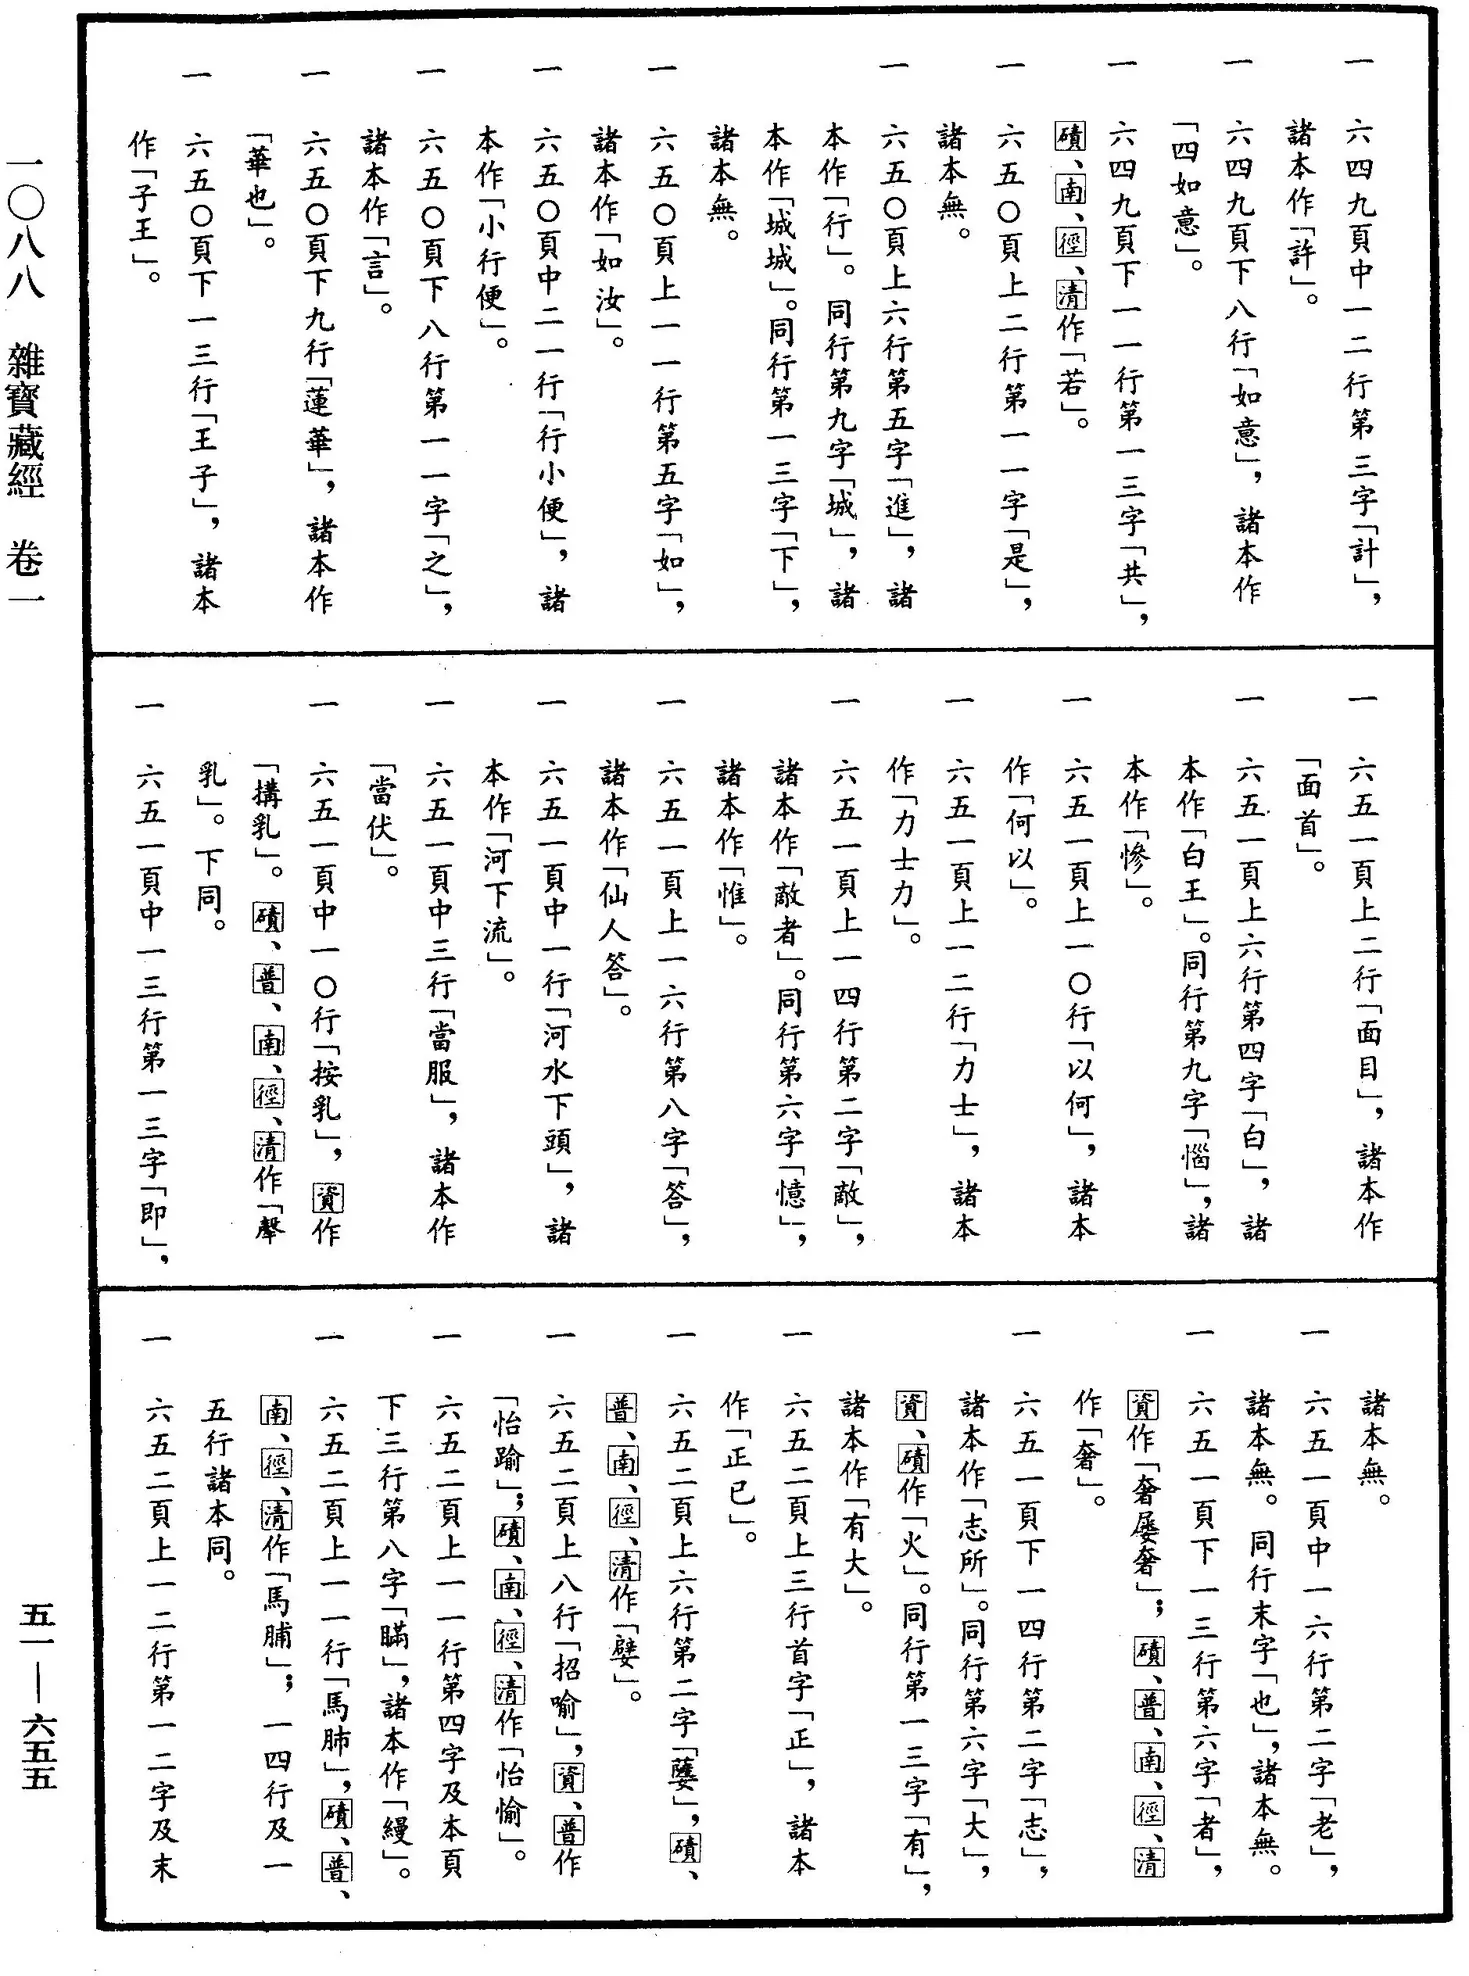 一　六四九頁中一二行第三字「計」，
諸本作「許」。
一　六四九頁下八行「如意」，諸本作
「四如意」。
一　六四九頁下一一行第一三字「共」，
磧、南、徑、清作「若」。
一　六五〇頁上二行第一一字「是」，
諸本無。
一　六五〇頁上六行第五字「進」，諸
本作「行」。同行第九字「城」，諸
本作「城城」。同行第一三字「下」，
諸本無。
一　六五〇頁上一一行第五字「如」，
諸本作「如汝」。
一　六五〇頁中二一行「行小便」，諸
本作「小行便」。
一　六五〇頁下八行第一一字「之」，
諸本作「言」。
一　六五〇頁下九行「蓮華」，諸本作
「華也」。
一　六五〇頁下一三行「王子」，諸本
作「子王」。
一　六五一頁上二行「面目」，諸本作
「面首」。
一　六五一頁上六行第四字「白」，諸
本作「白王」。同行第九字「惱」，諸
本作「慘」。
一　六五一頁上一〇行「以何」，諸本
作「何以」。
一　六五一頁上一二行「力士」，諸本
作「力士力」。
一　六五一頁上一四行第二字「敵」，
諸本作「敵者」。同行第六字「憶」，
諸本作「惟」。
一　六五一頁上一六行第八字「答」，
諸本作「仙人答」。
一　六五一頁中一行「河水下頭」，諸
本作「河下流」。
一　六五一頁中三行「當服」，諸本作
「當伏」。
一　六五一頁中一〇行「按乳」，資作
「搆乳」。磧、普、南、徑、清作「㲉
乳」。下同。
一　六五一頁中一三行第一三字「即」，
諸本無。
一　六五一頁中一六行第二字「老」，
諸本無。同行末字「也」，諸本無。
一　六五一頁下一三行第六字「者」，
資作「奢屡奢」；磧、普、南、徑、清
作「奢」。
一　六五一頁下一四行第二字「志」，
諸本作「志所」。同行第六字「大」，
資、磧作「火」。同行第一三字「有」，
諸本作「有大」。
一　六五二頁上三行首字「正」，諸本
作「正已」。
一　六五二頁上六行第二字「㜸」，磧、
普、南、徑、清作「嬖」。
一　六五二頁上八行「招喻」，資、普作
「怡踰」；磧、南、徑、清作「怡愉」。
一　六五二頁上一一行第四字及本頁
下三行第八字「瞞」，諸本作「縵」。
一　六五二頁上一一行「馬肺」，磧、普、
南、徑、清作「馬脯」；一四行及一
五行諸本同。
一　六五二頁上一二行第一二字及末
一〇八八　雜寶藏經　卷一
五一—六五五